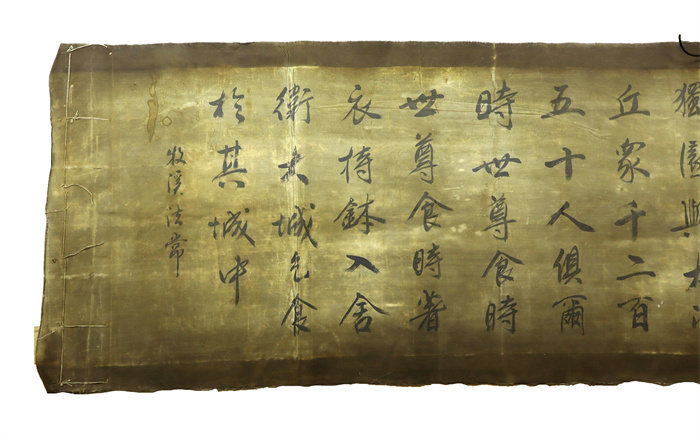 獨園與大
丘眾千二百
五十人俱爾
時世尊食時
世尊食時著
衣持鉢入舍
衛大城乞食
於其城中
牧溪法常